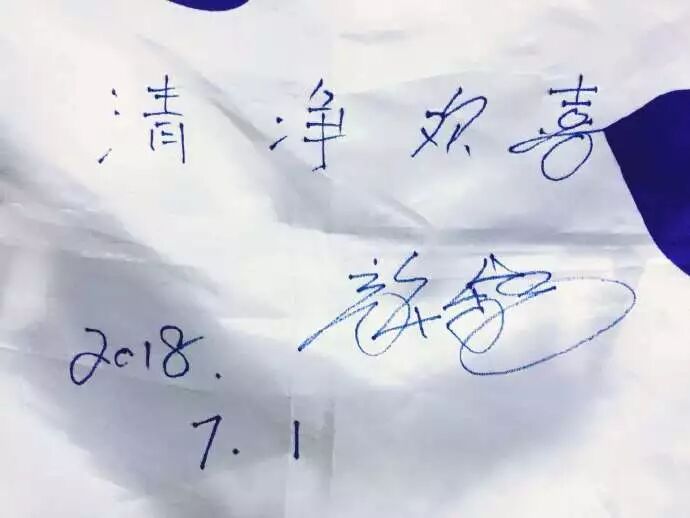 清净欢喜
2018.
7.1